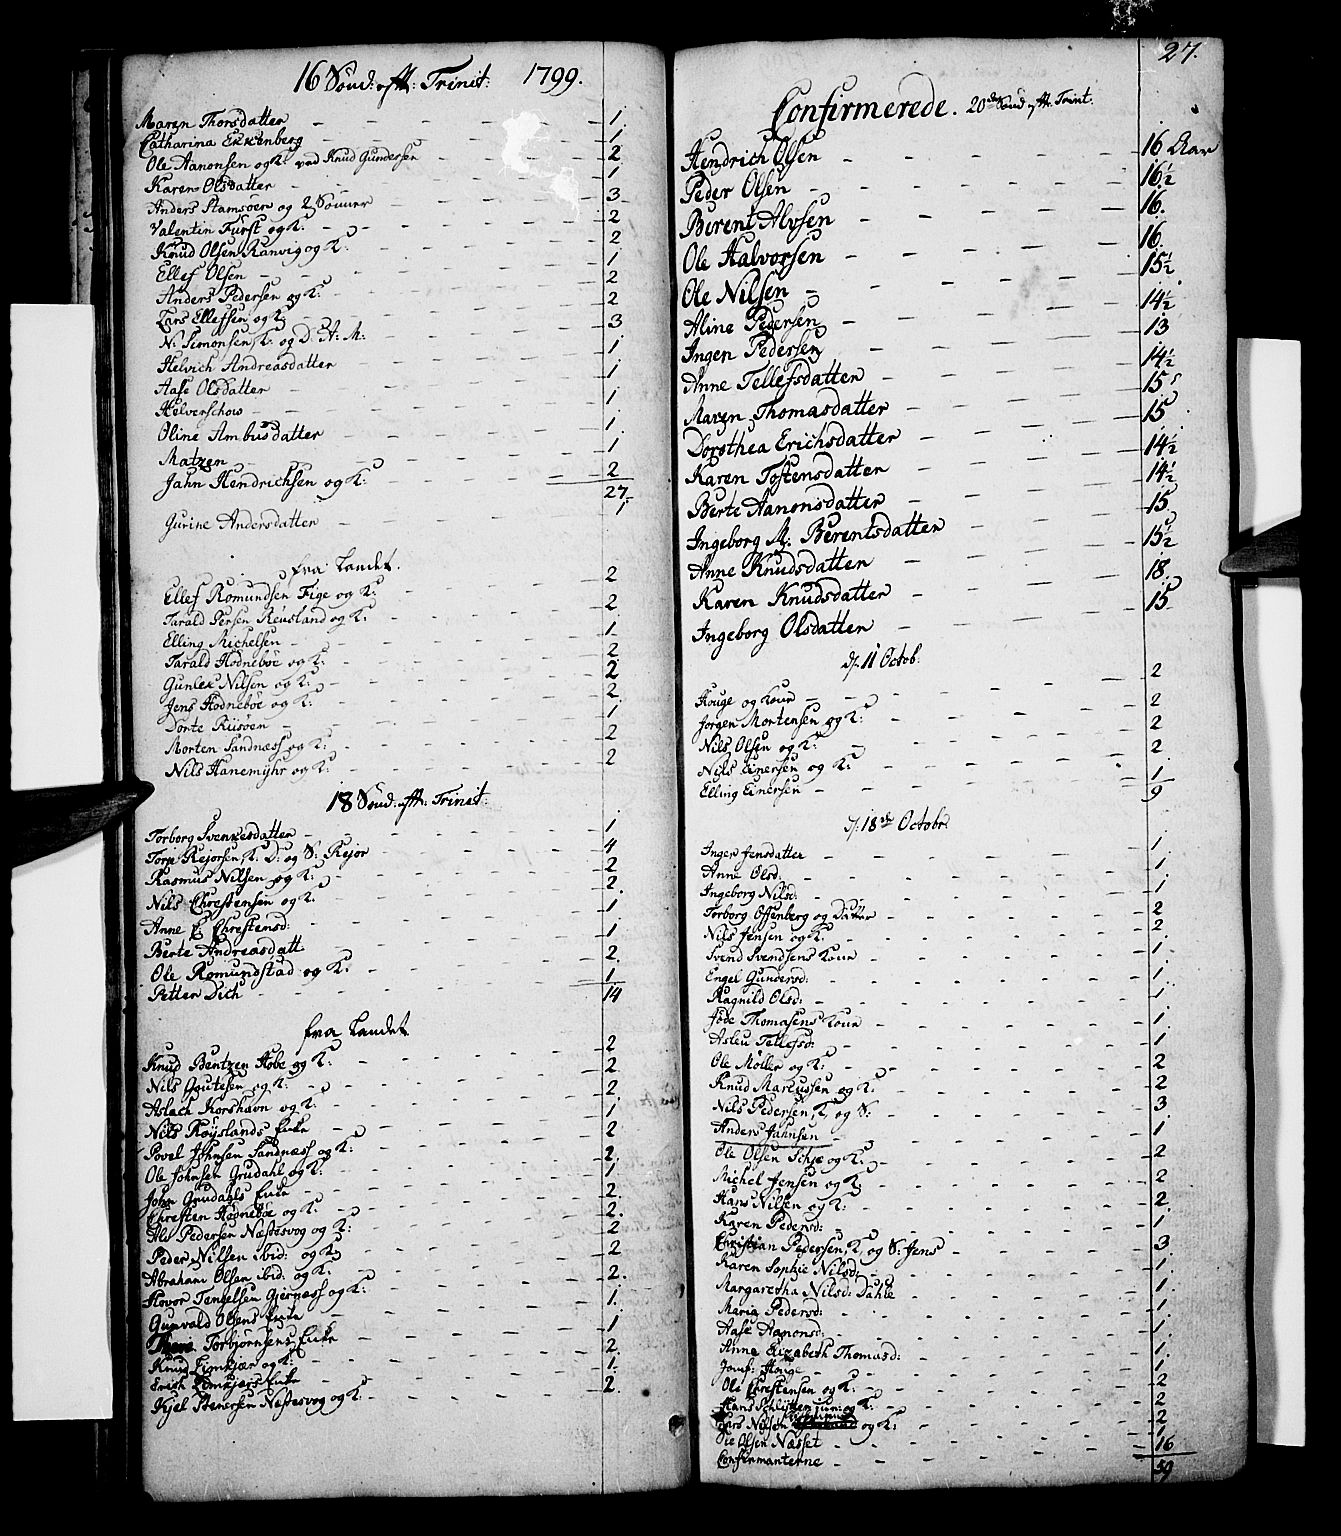 16 Sönd: efth: Trinit: 1799.
Maren Thorsdatter - 1.
Catharina Erkenberg 1
Ole Aanonsen og K: ved Knud Gundersen - 2
Karen Olsdatter - 1
Anders Stamsöen og 2 Sönner - 3
Valentin Furst og K: - 2
Knud Olsen Ranvig og K: - 2
Ellef Olsen - 1
Anders Pedersen og K: - 2
Lars Ellefsen og K: - 2
N: Simonsen, K: og D: A: M: 3
Helvich Andreasdatter 1
Aase Olsdatter - 1
Helverschow - 1
Oline Ambusdatter - 1
Matzen - 1
Jahn Hendrichsen og K: - 2
27
Gurine Andersdatter - 1
fra Landet.
Ellef Romundsen Fige og K: - 2
Tarald Persen Reusland og K: - 2
Elling Michelsen - 1
Tarald Hodneböe og K: - 2
Gunlek Nilsen og K: - 2
Jens Hodneböe og K: - 2
Dorte Riisöen - 1
Morten Sandness og K: - 2
Nils Hanemyhr og K: - 2
18 Sönd: efth: Trinit:
Torborg Svenkesdatter - 1
Torp Rejorsen, K: D: og S: Rejor - 4
Rasmus Nilsen og K: - 2
Nils Chrestensen og K: - 2
Anne E: Chrestensd: - 1
Berte Andreasdatt - 1
Ole Romundstad og K: - 2
Petter Dich - 1
14
fra Landet
Knud Bentzen Höbe og K: - 2
Nils Goutesen og K: - 2
Aslach Korshavn og K: - 2
Nils Röyslands Enke - 1
Povel Johnsen Sandness og K: - 2
Ole Johnsen Grudahl og K: - 2
John Grudahls Enke - 1
Chresten Hodneböe og K: - 2
Ale Pedersen Nastesvog og K: - 2
Peder Nilsen ibid: og K: - 2
Abraham Olsen ibid: og K: - 2
Hovor Tengelsen Gjernæss og K: - 2
Gunvald Olsens Enke - 1
Torbjörnsens Enke - 1
Knud Limkjær og K: - 2
Erich Limkjærs Enke - 1
Kjel Stenersen Nastesvog og K: - 2
27.
Confirmerede. 20de Sönd efth: Trinit:
Hendrich Olsen - 16 Aar
Peder Olsen - 16½
Berent Alvsen - 16.
Ole Halvorsen - 16.
Ole Nilsen - 15½
Aline Pedersen - 14½
Ingen Pedersen - 13
Anne Tellefsdatter - 14½
Maren Thomasdatter - 15
Dorothea Erichsdatter - 15
Karen Tostensdatter - 14½
Berte Aanonsdatter - 14½
Ingeborg M: Berentsdatter - 15
Anne Knudsdatter - 15½
Karen Knudsdatter - 18
Ingeborg Olsdatter - 15
d: 11 Octob:
Houge og Kone - 2
Jörgen Mortensen og K: - 2
Nils Olsen og K: - 2
Nils Einersen og K: - 2
Elling Einersen - 1
9
d: 18de Octobr:
Inger Jensdatter - 1
Anne Olsd: - 1
Ingeborg Nilsd: - 1
Torborg Offenberg og Datter - 2
Nils Jensen og K: - 2
Svend Svendsens Kone - 1
Engel Gundersd: - 1
Ragnild Olsd: - 1
Jöde Thomasens Kone - 1
Asleu Tellefsd: - 1
Ole Möller og K: - 2
Knud Marcussen og K: - 2
Nils Pedersen, K: og S: - 3
Anders Jahnsen - 1
Ole Olsen Schje og K: - 2
Michel Jensen og K: - 2
Hans Nilsen og K: - 2
Karen Pedersd: - 1
Christian Pedersen, K: og S: Jens - 3
Karen Sophie Nilsd: - 1
Margaretha Nilsd: Dahle - 1
Maria Pedersd: - 1
Aase Aanonsd: - 1
Anne Elizabeth Thomasd: - 1
Jomf: Houge - 1
Ole Chrestensen og K: - 2
Hans Schlytter jun: og K: - 2
Lars Nilsen og K: - 2
Sie Olsen Nasset - 1
Confirmanterne - 16
59